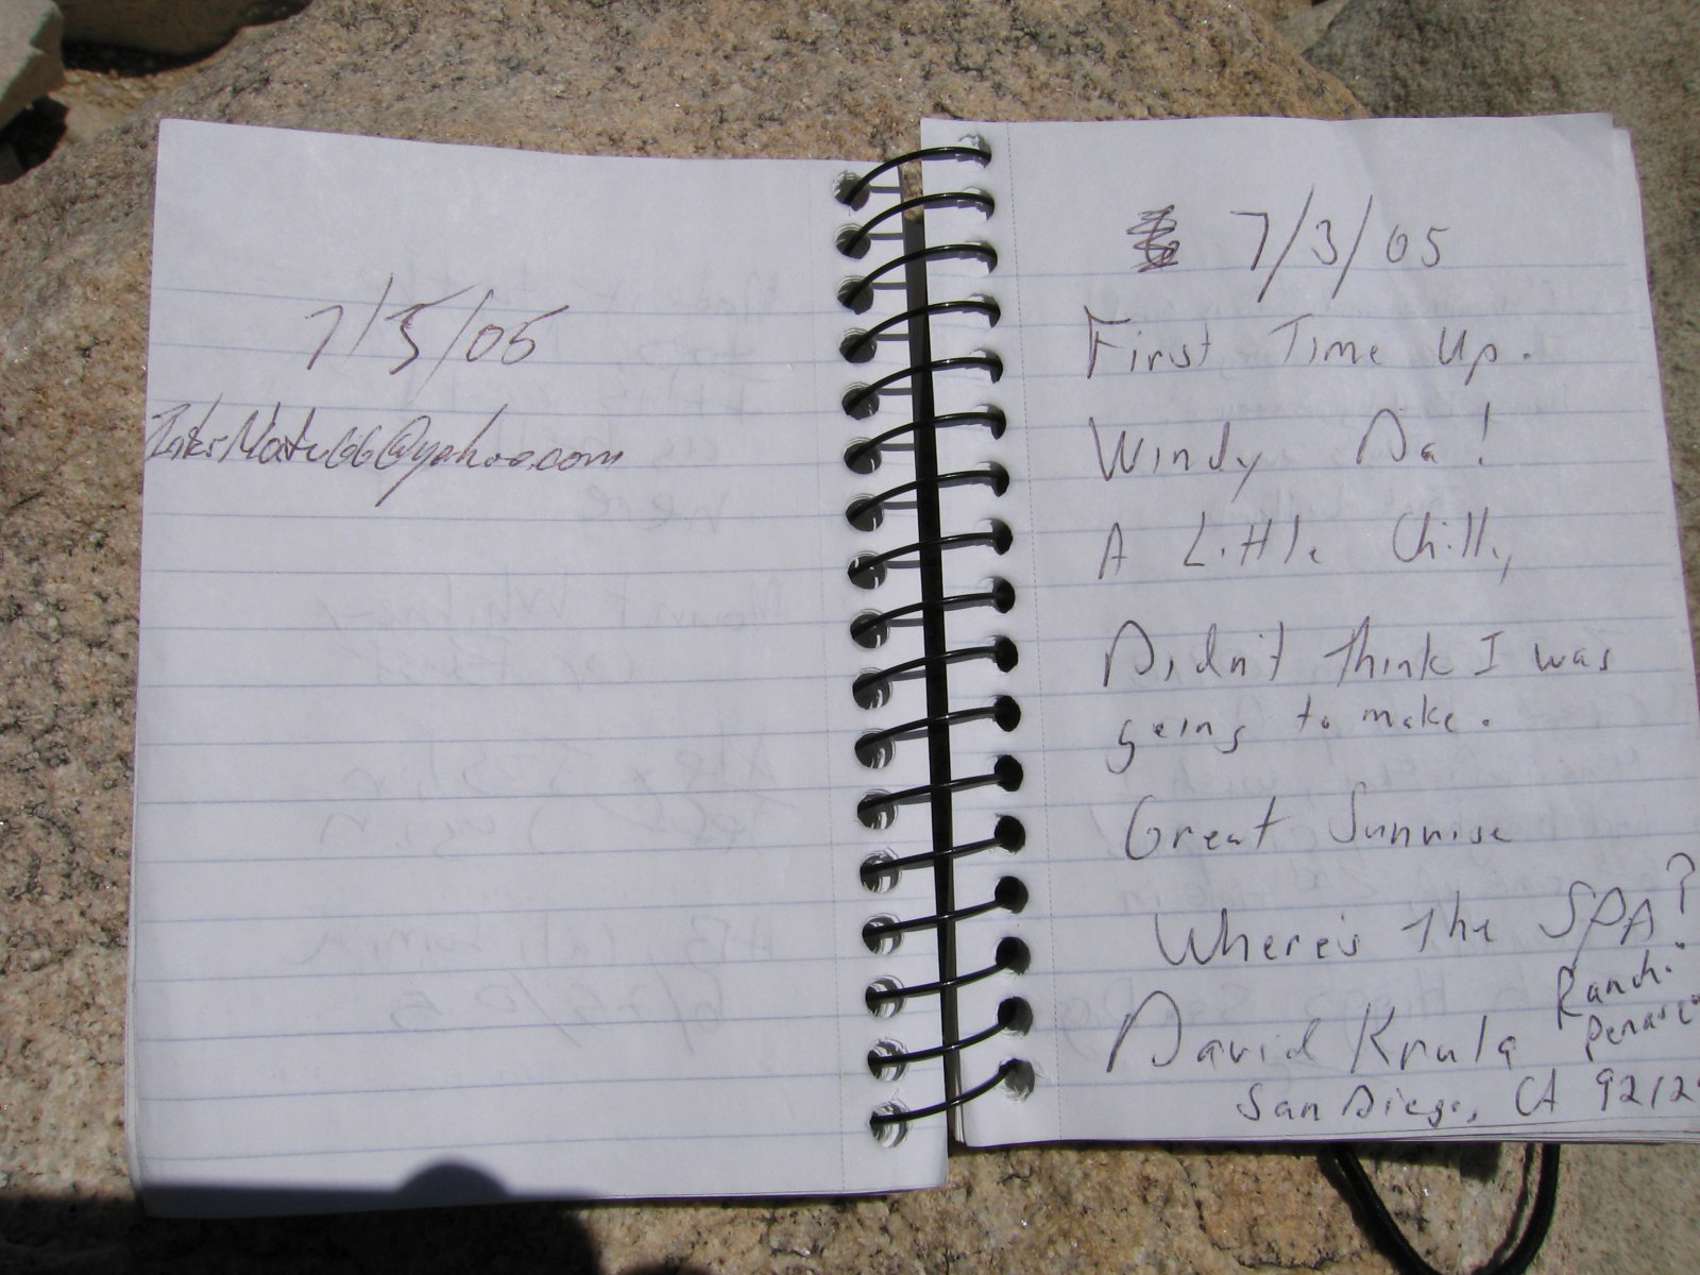 7/3/05
@yahoo.com
7/3/05
First Time Up.
Windy Da!
A Little Chilly
Didn't think I was
going to make.
Great Sunrise
Where's the SPA?
David Krula
San Diego, CA 9212